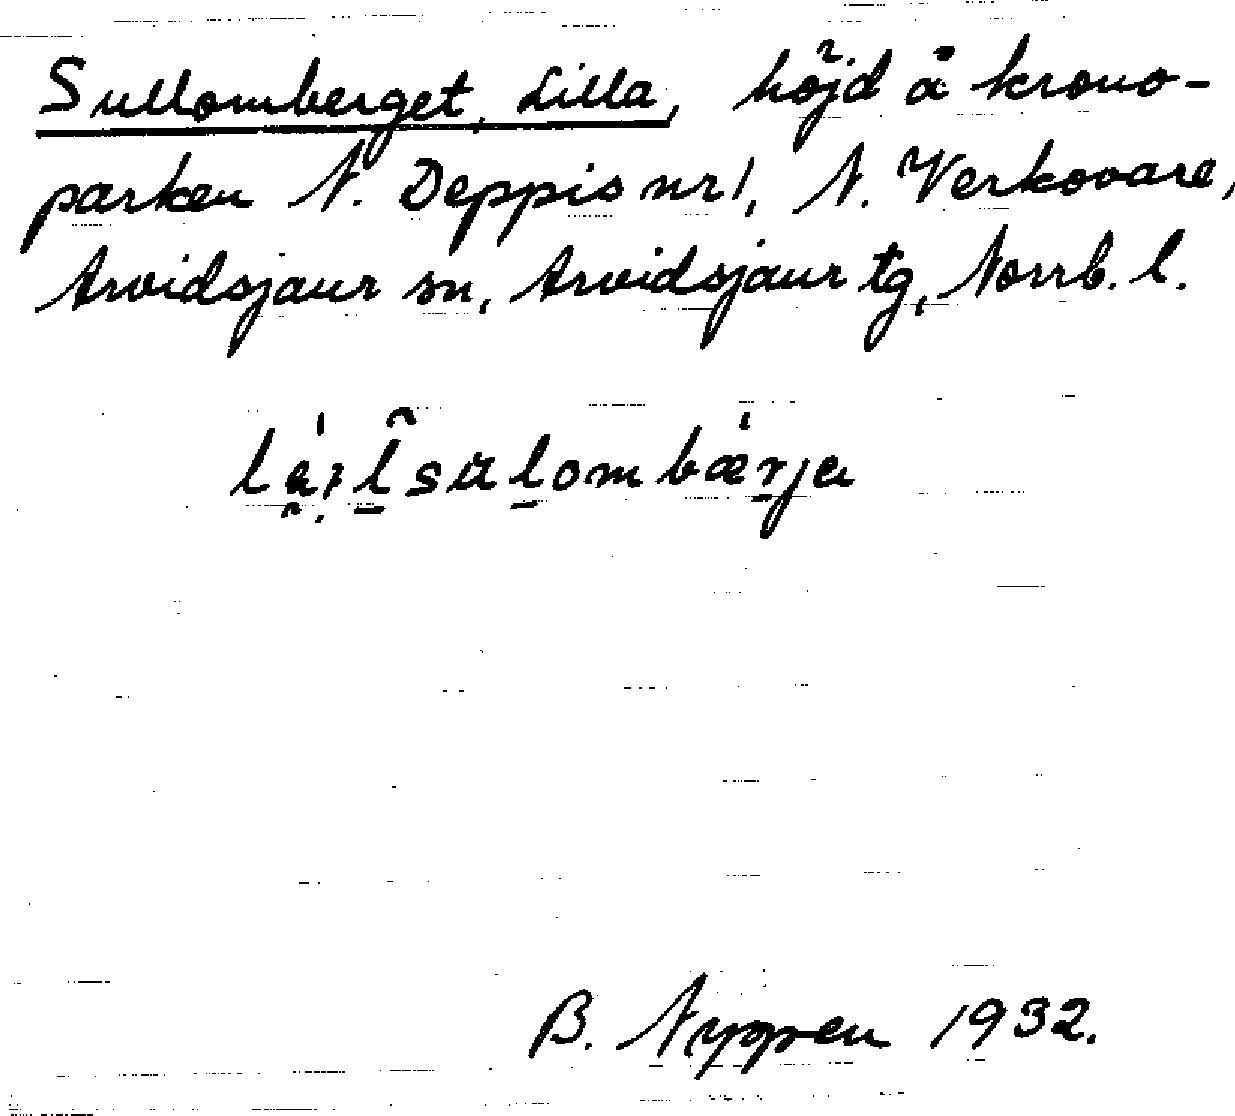 Sullomberget, Lilla, höjd å krono-
parken N. Deppis nr 1, N. Verkovare,
Arvidsjaur sn, Arvidsjaur tg, Norrb. l.
B. Nygren 1932.